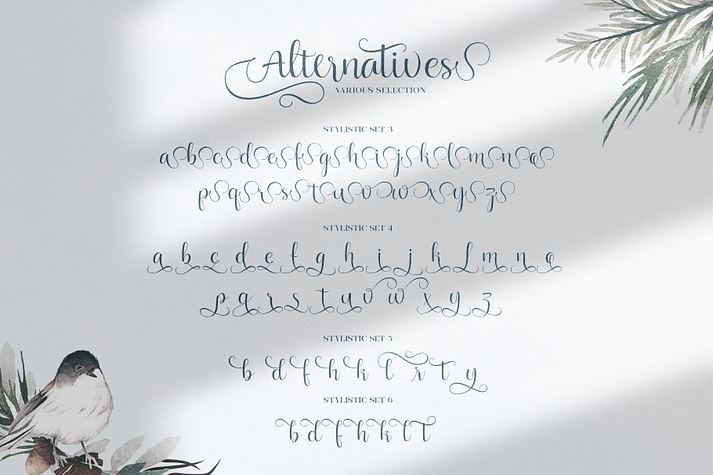 Alternatives
VARIOUS SELECTION
STYLISTIC SET 3
a b c d e f g h i j k l m n o
p q r s t u v w x y z
STYLISTIC SET 4
a b c d e f g h i j k l m n o
p q r s t u v w x y z
STYLISTIC SET 5
b d f h k l r t y
STYLISTIC SET 6
b d f h k l t